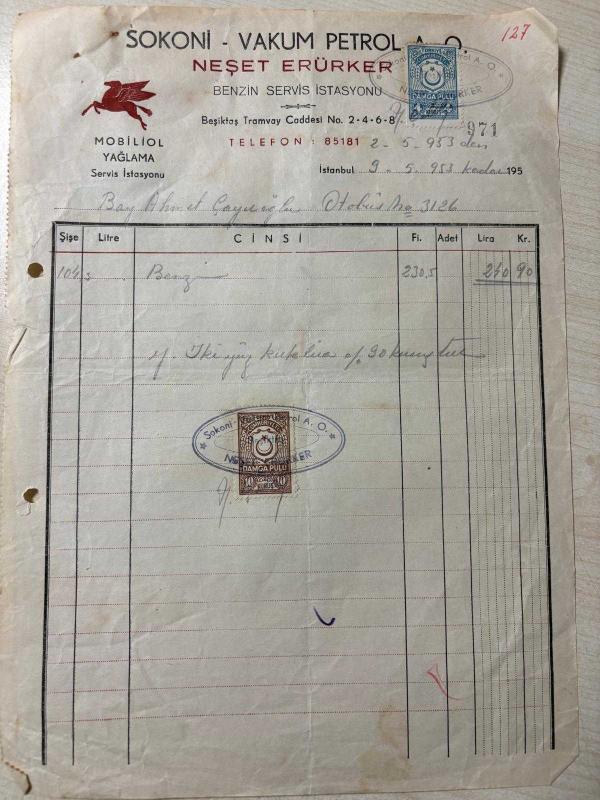 127
SOKONİ - VAKUM PETROL A. O.
NEŞET ERÜRKER
BENZİN SERVİS İSTASYONU
Beşiktaş Tramvay Caddesi No. 2-4-6-8
TELEFON : 85181
MOBİLİOL
YAĞLAMA
Servis İstasyonu
DAMGA PULU
971
2-5-953 den
İstanbul 9-5-953 kadar 195
Bay Ahmet Otobüs No 3126
Şişe Litre CİNSİ Fi. Adet Lira Kr.
104,5 Benzin 230,5 240 90
İki yüz kırk lira 90 kuruştur
Sokoni- Petrol A. O.
ERÜRKER
DAMGA PULU
10 10